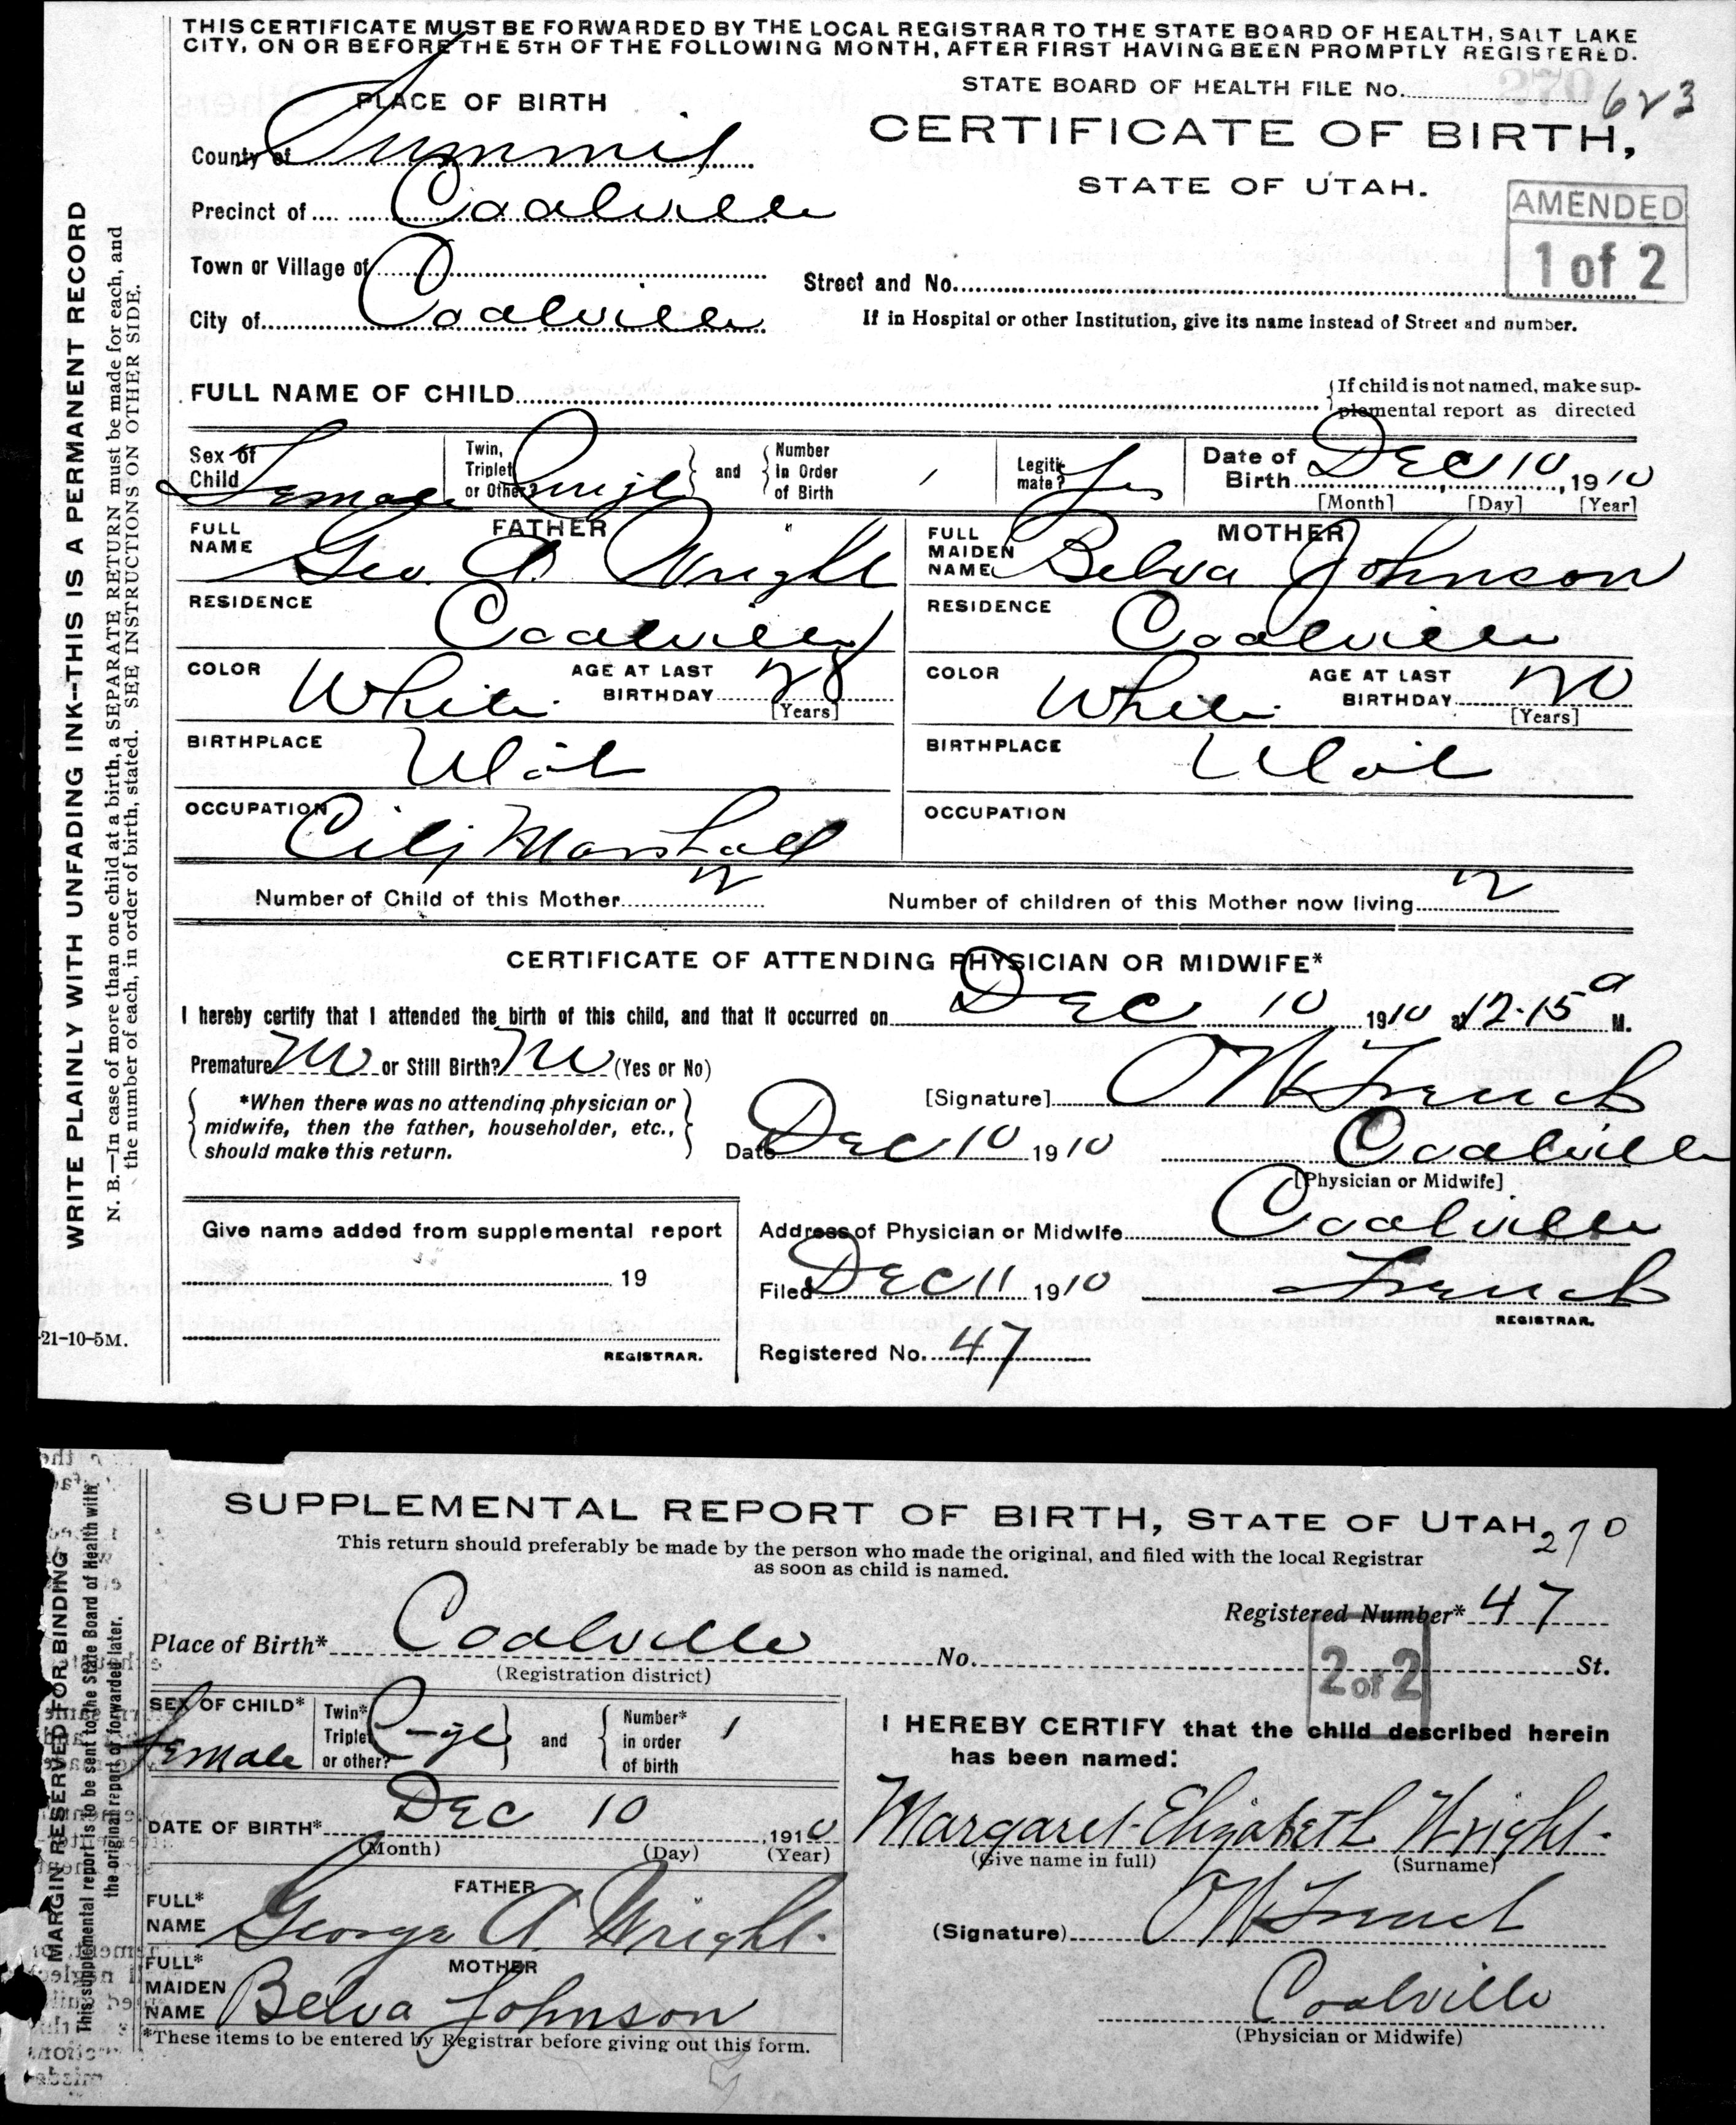 THIS CERTIFICATE MUST BE FORWARDED BY THE LOCAL REGISTRAR TO THE STATE BOARD OF HEALTH, SALT LAKE
CITY, ON OR BEFORE THE 5TH OF THE FOLLOWING MONTH, AFTER FIRST HAVING BEEN PROMPTLY REGISTERED.
STATE BOARD OF HEALTH FILE No. 270 623
PLACE OF BIRTH
CERTIFICATE OF BIRTH,
STATE OF UTAH.
County of Summit
Precinct of Coalville
AMENDED
1 of 2
Town or Village of
Street and No.
City of Coalville
If in Hospital or other Institution, give its name instead of Street and number.
FULL NAME OF CHILD
If child is not named, make sup-
plemental report as directed
Sex of Child Female
Twin, Triplet or Other? Single and Number in Order of Birth 1
Legitimate? Yes
Date of Birth Dec 10, 1910
[Month] [Day] [Year]
FATHER
FULL NAME Geo. A. Wright
MOTHER
FULL MAIDEN NAME Belva Johnson
RESIDENCE Coalville
RESIDENCE Coalville
COLOR White AGE AT LAST BIRTHDAY 28 [Years]
COLOR White AGE AT LAST BIRTHDAY 20 [Years]
BIRTHPLACE Utah
BIRTHPLACE Utah
OCCUPATION City Marshall
OCCUPATION
Number of Child of this Mother 2 Number of children of this Mother now living 2
CERTIFICATE OF ATTENDING PHYSICIAN OR MIDWIFE*
I hereby certify that I attended the birth of this child, and that it occurred on Dec 10 1910 at 12.15 a M.
Premature No or Still Birth? No (Yes or No)
*When there was no attending physician or
midwife, then the father, householder, etc.,
should make this return.
[Signature] O W French
Date Dec 10 1910 Coalville
[Physician or Midwife]
Give name added from supplemental report
19
REGISTRAR.
Address of Physician or Midwife Coalville
Filed Dec 11 1910 French
REGISTRAR.
Registered No. 47
21-10-5M.
WRITE PLAINLY WITH UNFADING INK--THIS IS A PERMANENT RECORD
N. B.—In case of more than one child at a birth, a SEPARATE RETURN must be made for each, and
the number of each, in order of birth, stated. SEE INSTRUCTIONS ON OTHER SIDE.
SUPPLEMENTAL REPORT OF BIRTH, STATE OF UTAH 270
This return should preferably be made by the person who made the original, and filed with the local Registrar
as soon as child is named.
Registered Number* 47
Place of Birth* Coalville No. St.
(Registration district)
2 of 2
SEX OF CHILD* Female
Twin* Triplet or other? and Number* in order of birth 1
I HEREBY CERTIFY that the child described herein
has been named:
DATE OF BIRTH* Dec 10, 1910
(Month) (Day) (Year)
Margaret Elizabeth Wright
(Give name in full) (Surname)
FATHER
FULL* NAME George A Wright
(Signature) O W French
MOTHER
FULL* MAIDEN NAME Belva Johnson
Coalville
(Physician or Midwife)
*These items to be entered by Registrar before giving out this form.
MARGIN RESERVED FOR BINDING
This supplemental report is to be sent to the State Board of Health with
the original report or forwarded later.